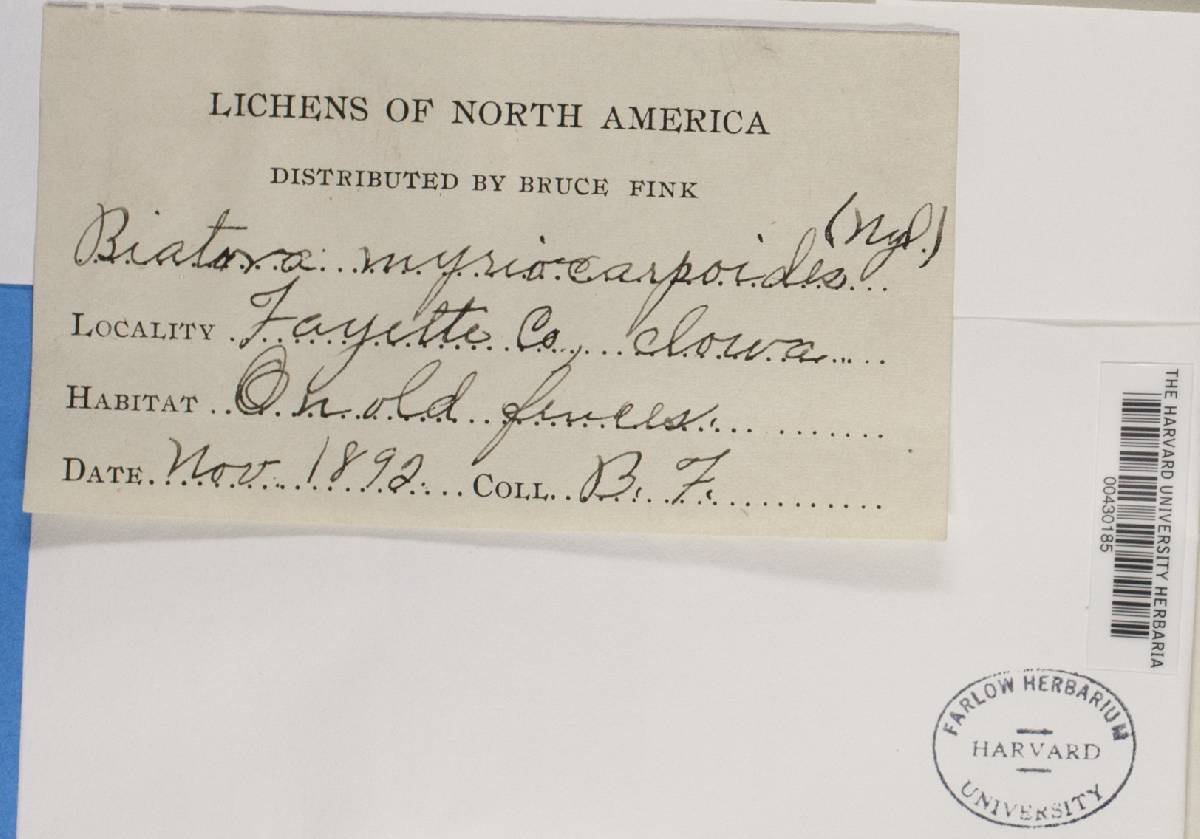 LICHENS OF NORTH AMERICA
DISTRIBUTED BY BRUCE FINK
Biatora myriocarpoides (Nyl.)
LOCALITY Fayette Co., Iowa
HABITAT On old fences.
DATE Nov. 1892. COLL. B. F.
THE HARVARD UNIVERSITY HERBARIA
00430185
FARLOW HERBARIUM
HARVARD
UNIVERSITY